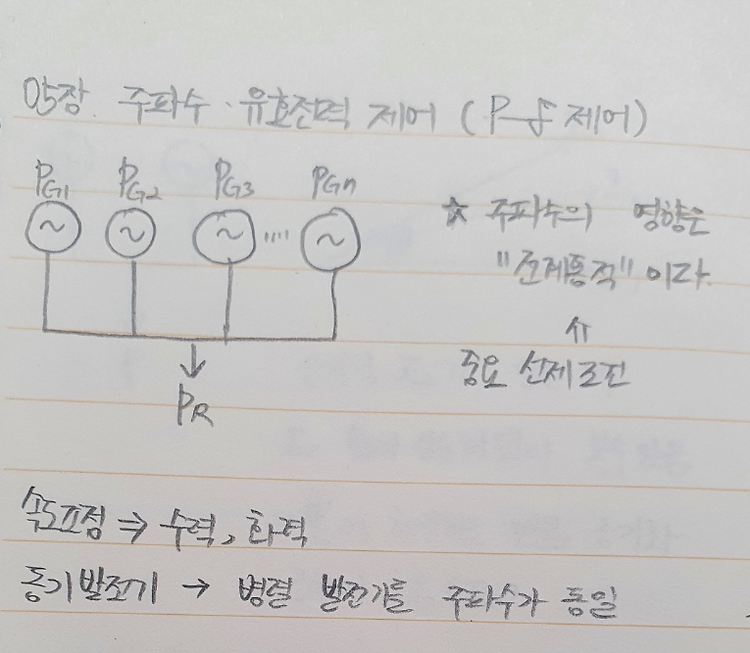 05장. 주파수·유효전력 제어 (P-f 제어)
PG1 PG2 PG3 PGn
~ ~ ~ ..... ~
☆ 주파수의 영향은
"전계통적" 이다.
⇑
중요 선제조건
PR
속도조정 ⇒ 수력, 화력
동기발전기 → 병렬 발전기를 주파수가 동일